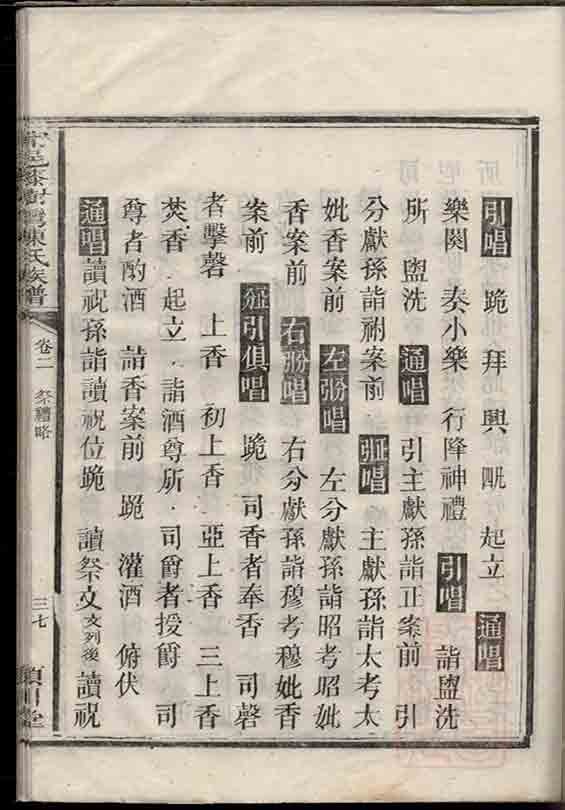 引唱 跪 拜 興 四 起立 通唱
樂闋 奏小樂 行降神禮 引唱 詣盥洗
所 盥洗 通唱 引主獻孫詣正案前 引
分獻孫詣祔案前 引唱 主獻孫詣太考太
妣香案前 左分唱 左分獻孫詣昭考昭妣
香案前 右分唱 右分獻孫詣穆考穆妣香
案前 引俱唱 跪 司香者奉香 司磬
者擊磬 上香 初上香 亞上香 三上香
焚香 起立 詣酒尊所 司爵者授爵 司
尊者酌酒 詣香案前 跪 灌酒 俯伏
通唱 讀祝孫詣讀祝位跪 讀祭文文列後 讀祝
陳氏族譜 卷二 祭禮略 三七 潁川堂